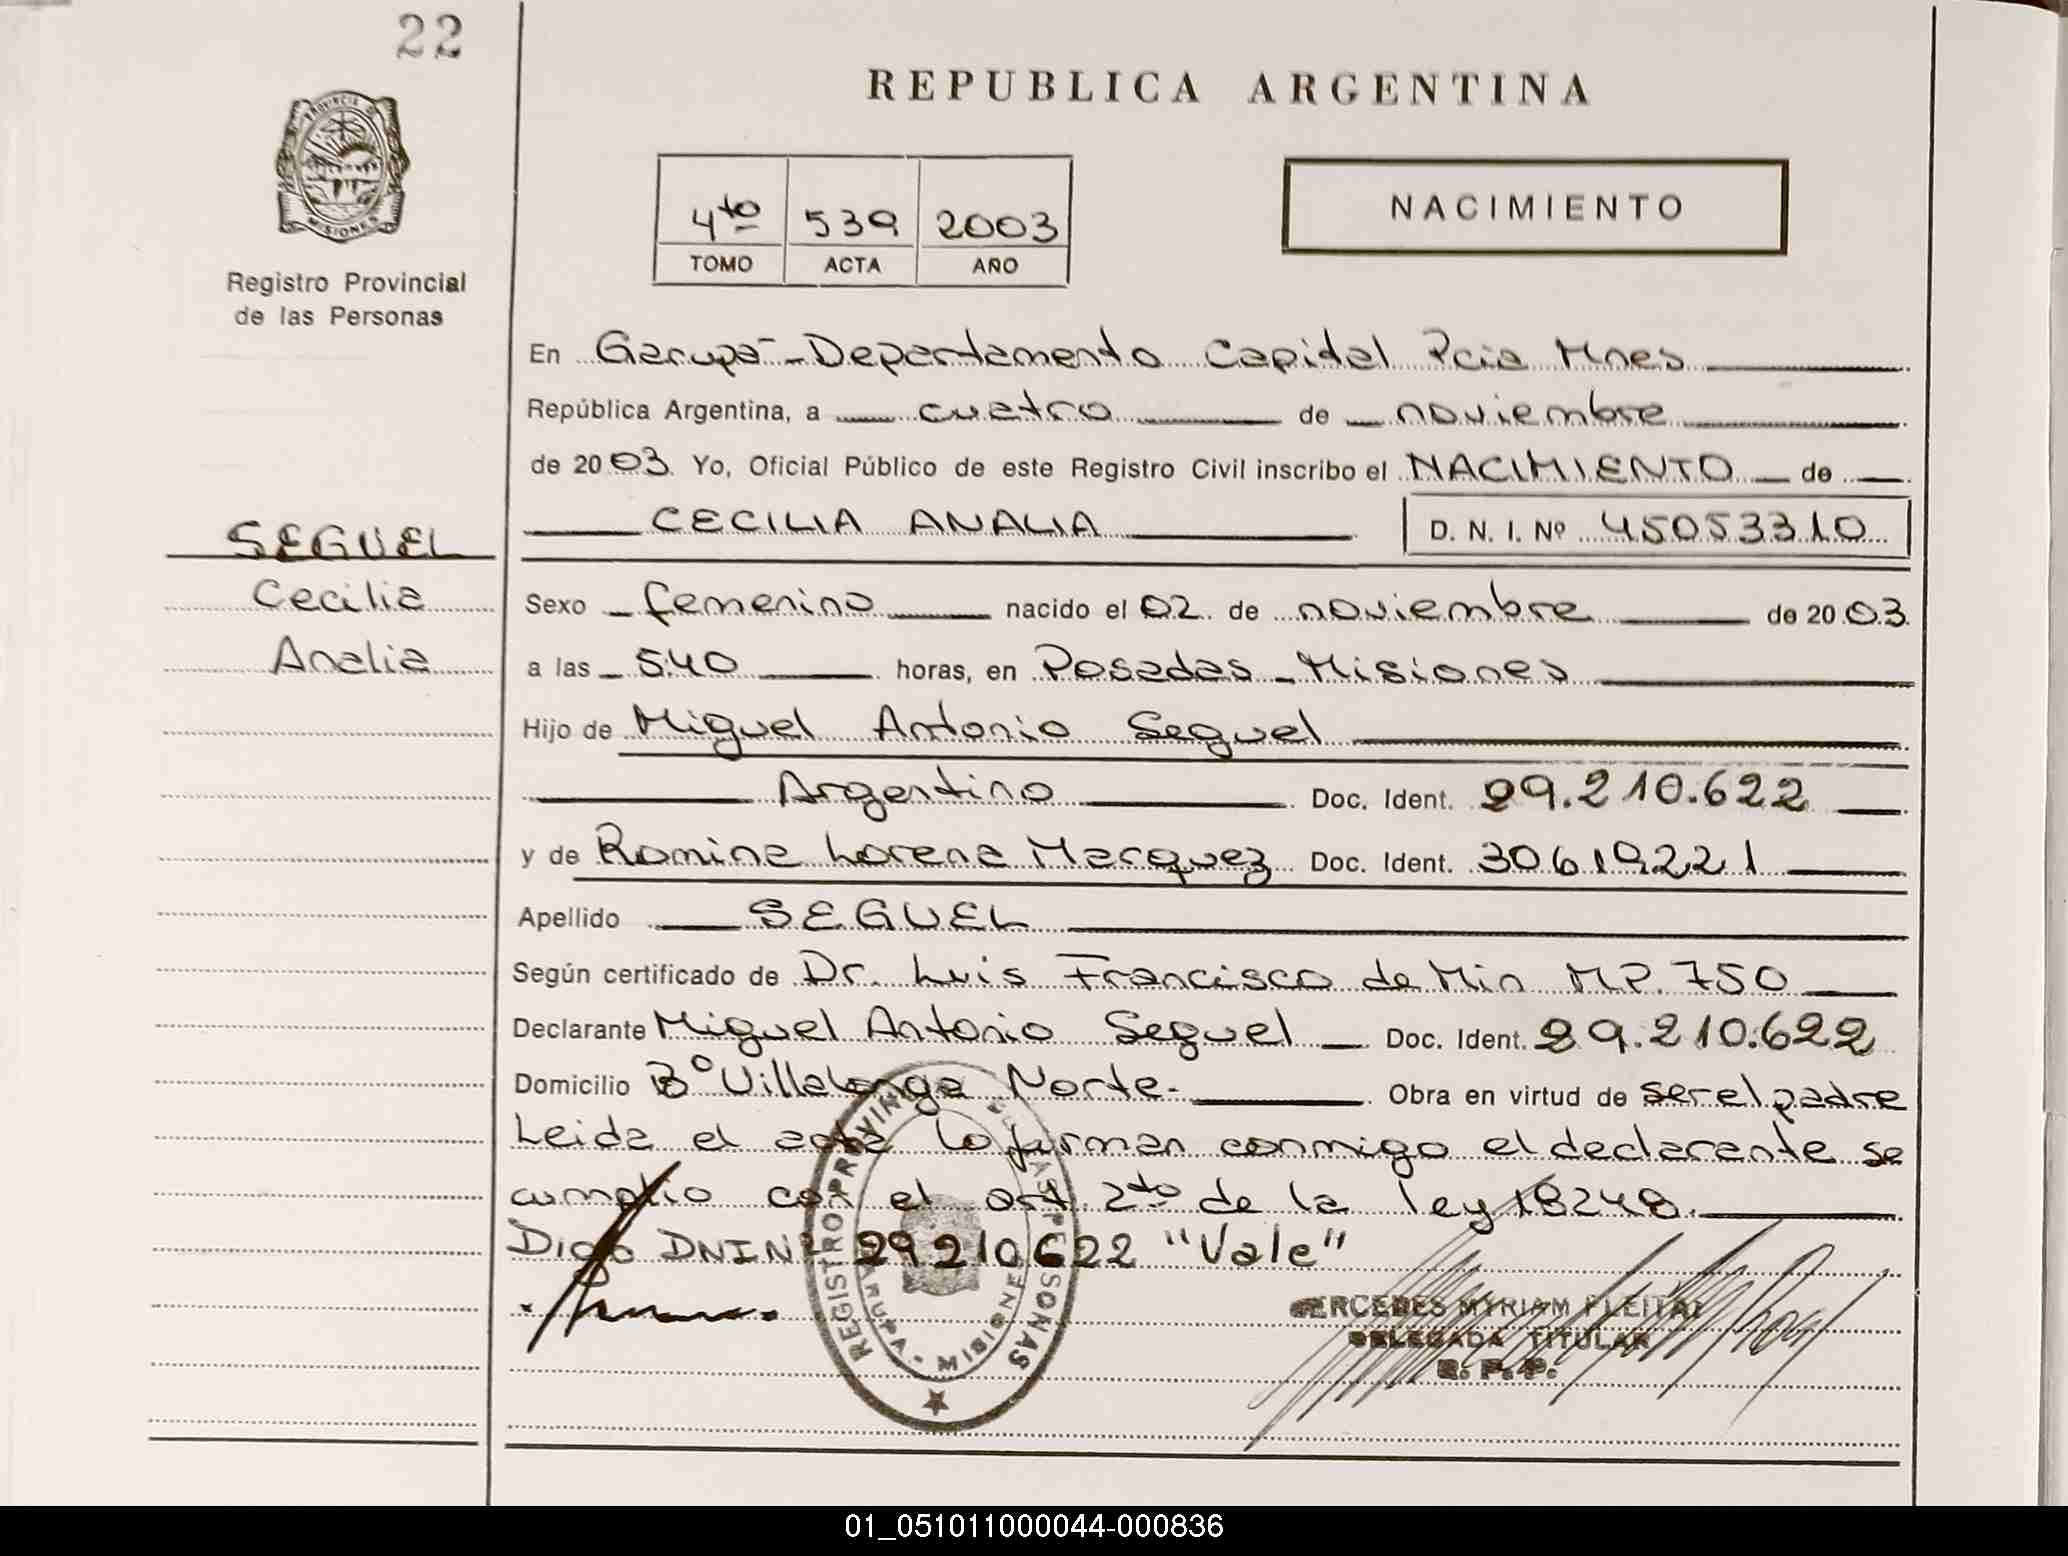 22
PROVINCIA D
MISIONES
Registro Provincial
de las Personas
REPUBLICA ARGENTINA
4to 539 2003
TOMO ACTA AÑO
NACIMIENTO
En Garupa - Departamento Capital Pcia Mnes
República Argentina, a cuatro de noviembre
de 2003. Yo, Oficial Público de este Registro Civil inscribo el NACIMIENTO de
CECILIA ANALIA D. N. I. Nº 45053310
SEGUEL
Cecilia
Analia
Sexo femenino nacido el 02 de noviembre de 2003
a las 5:40 horas, en Posadas - Misiones
Hijo de Miguel Antonio Seguel
Argentino Doc. Ident. 29.210.622
y de Romina Lorena Marquez Doc. Ident. 30619221
Apellido SEGUEL
Según certificado de Dr. Luis Francisco de Min MP. 750
Declarante Miguel Antonio Seguel Doc. Ident. 29.210.622
Domicilio Bº Villalonga Norte - Obra en virtud de ser el padre
Leida el acta lo firman conmigo el declarante se
cumplio con el art. 2to de la ley 18248.
Digo DNI Nº 29210622 "Vale"
REGISTRO PROVIN DE LAS PERSONAS
GARUPA - MISIONES
MERCEDES MYRIAM FLEITAS
DELEGADA TITULAR
R. P. P.
01_051011000044-000836